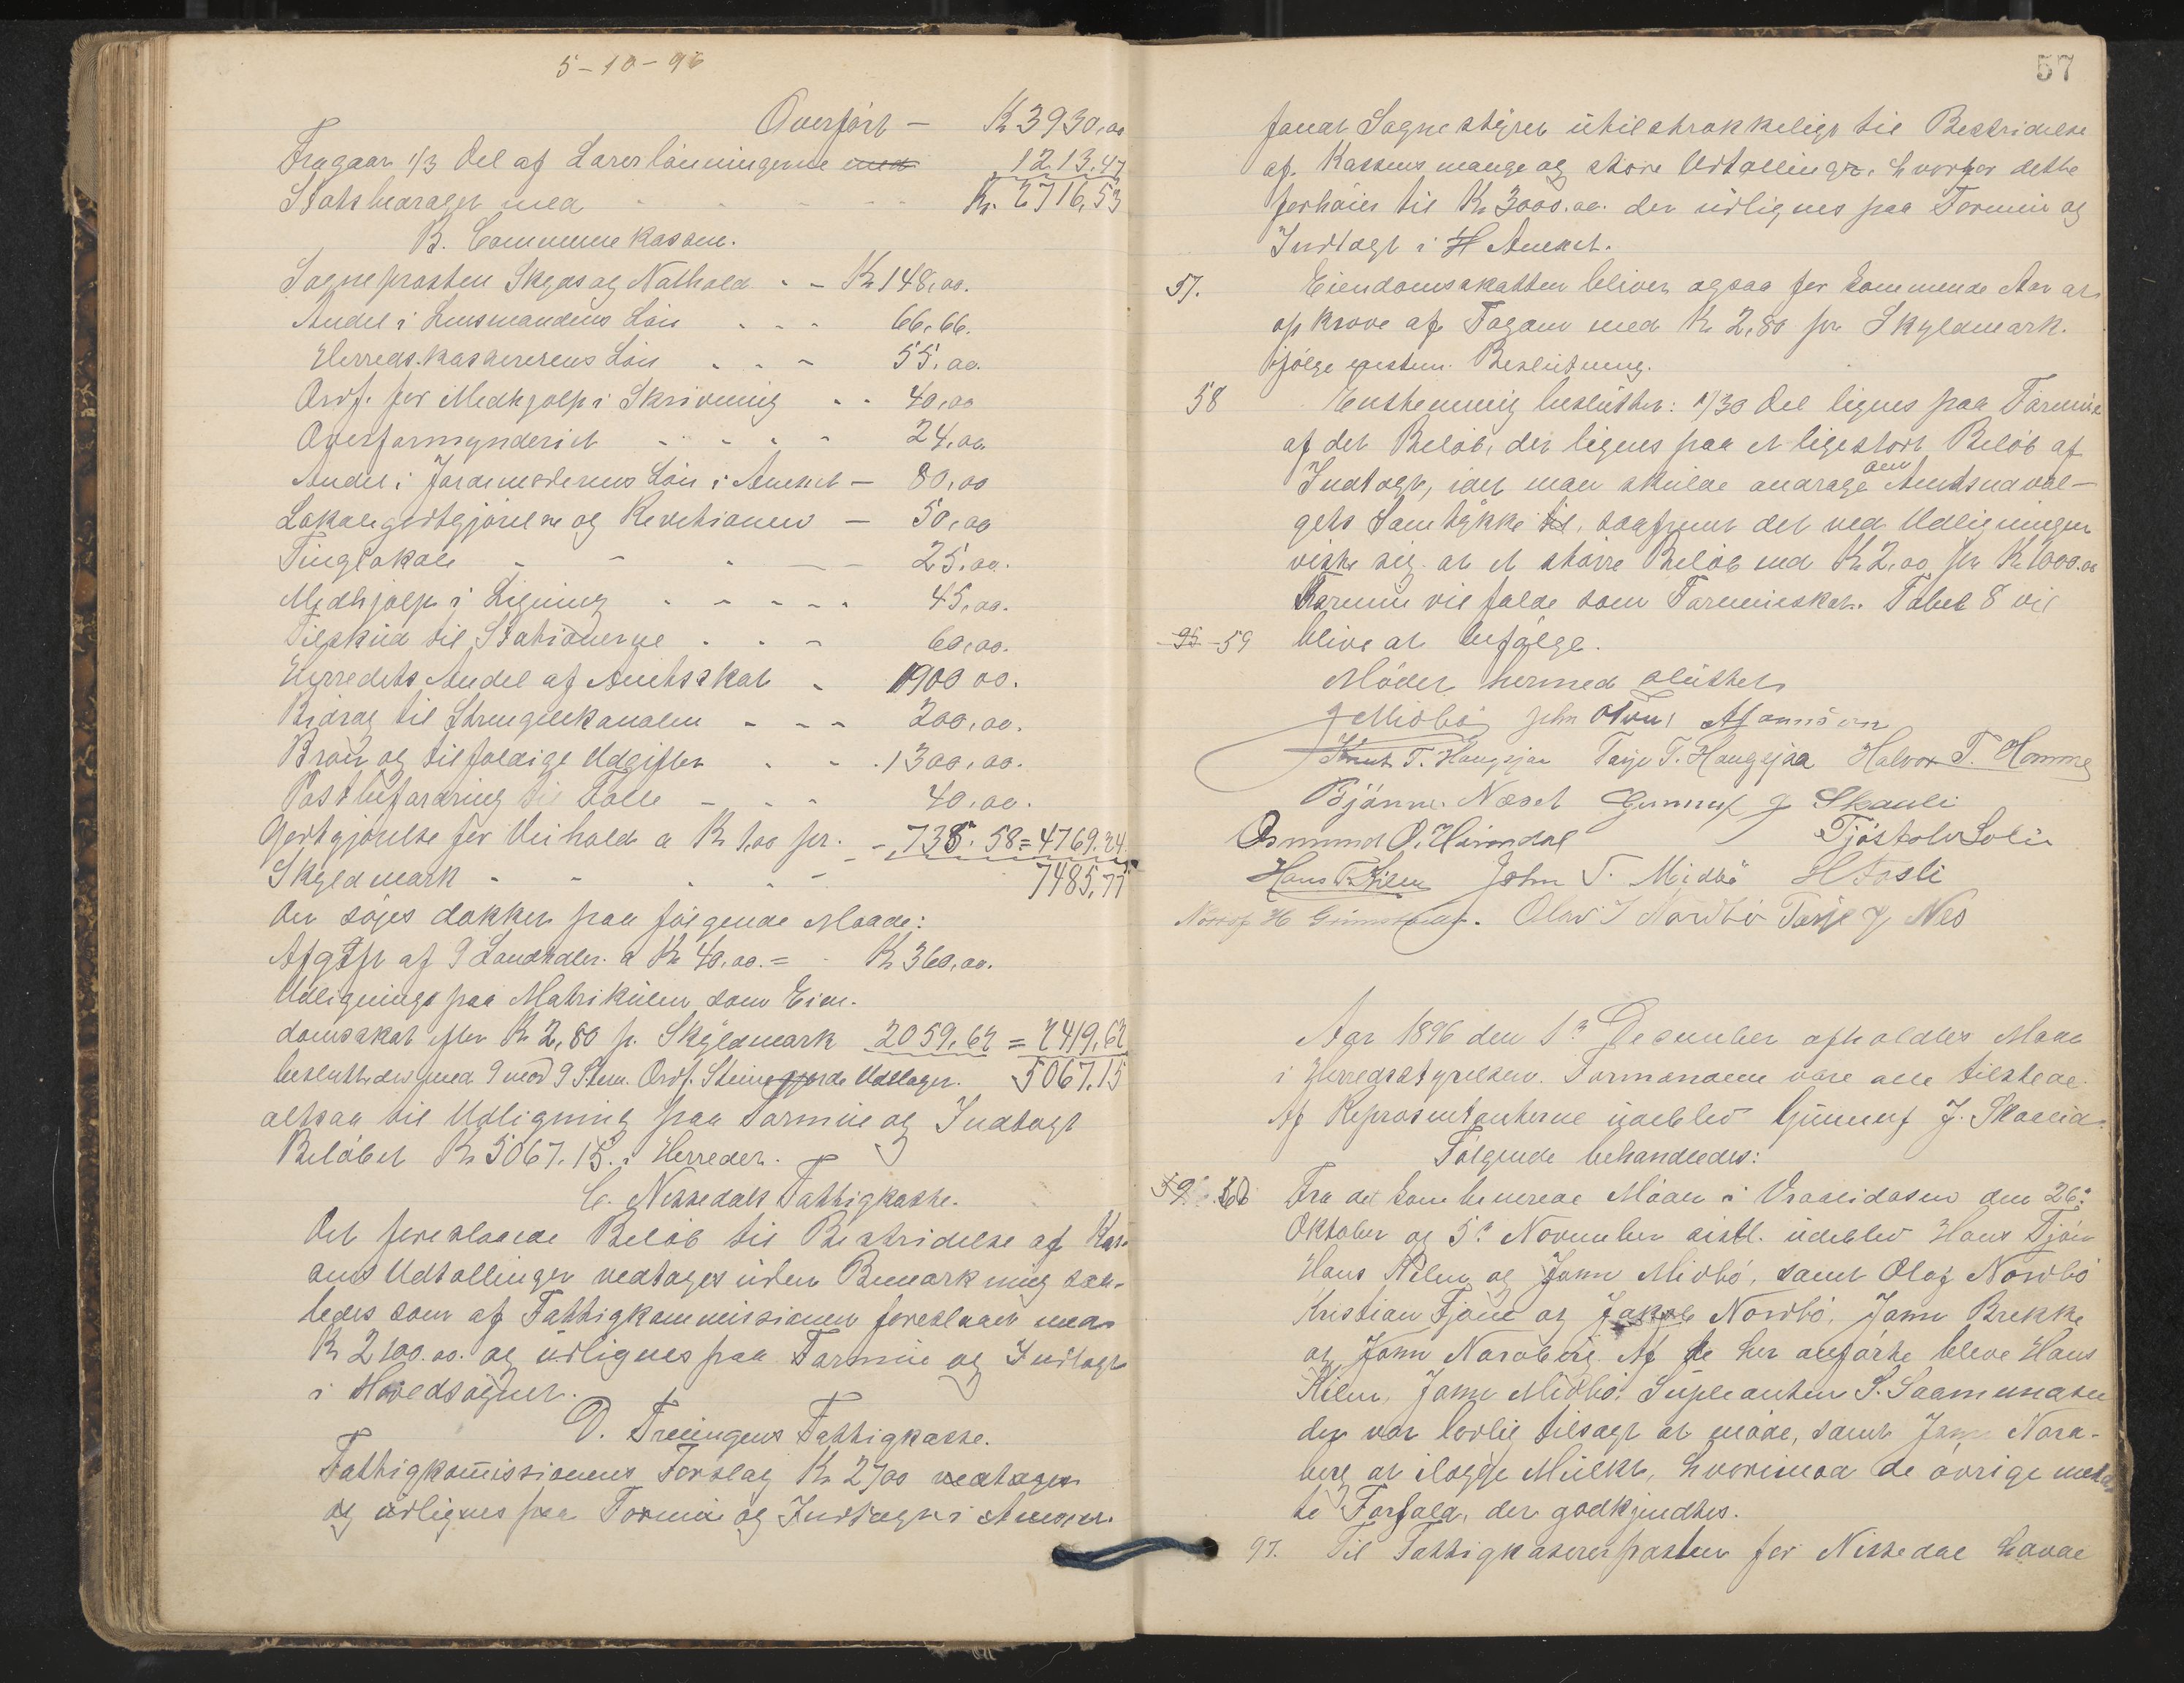 5-10-96
Overført - Kr 3930,00
Fragaar 1/3 Del af Lærerlønningerne med 1213,47
Statsbidraget med - - - Kr. 2716,53
B. Communekassen.
Sogneprestens Skyds og Nathold - - Kr 148,00.
Andel i Lensmandens Løn - - - 66,66.
Herredskassererens Løn - - - 55,00.
Ordf. for Medhjælp i Skrivning - - 40,00
Overformynderiet - - - - 24,00
Andel i Jordemoderens Løn i Annexet - 80,00
Lokalegodtgjørelse og Revisionen - 50,00
Tinglokale - - - - 25,00.
Medhjælp i Ligning - - - - - 45,00.
Tilskud til Stationerne - - - 60,00.
Herredets Andel af Amtsskat - 1900 00.
Bidrag til Strengenkanalen - - - 200,00.
Broer og tilfældige Udgifter - - 1300,00.
Postbefordring til - - - 40,00.
Godtgjørelse for Veihold a Kr 1,00 pr. - 735.58 = 4769.24
Skyldmark - - - - - 7485,77
der søges dækket paa følgende Maade:
Afgift af 9 Landhdlr. a Kr 40,00. = - Kr 360,00.
Udlignings paa Matrikulen som Eien-
domsskat efter Kr 2,80 p. Skyldmark 2059,62 = 2419,62
besluttedes med 9 mod 9 Stem. Ordf. Stemme gjorde Udslaget. 5067.15
altsaa til Udligning paa Formue og Indtægt
Beløbet Kr 5067.15. i Herredet.
C. Nissedals Fattigkasse.
Det foreslaaede Beløb til Bestridelse af Kas-
sens Udtællinger vedtages uden Bemærkning saa-
ledes som af Fattigkommissionen foreslaaet med
Kr 2100.00. og udlignes paa Formue og Indtægt
i Hovedsognet.
D. Treungens Fattigkasse.
Fattigkomissionens Forslag Kr 2700 vedtages
og udlignes paa Formue og Indtægt i Annexet.
57
fandt Sognestyret utilstrækkeligt til Bestridelse
af Kassens mange og store Udtællinger, hvorfor dette
forhøies til Kr 3000.00. der udlignes paa Formue og
Indtægt i H Annext.
57. Eiendomsskatten bliver ogsaa for kommende Aar at
opkræve af Fogden med Kr 2,80 pr Skyldmark.
ifølge Beslutning.
58 Enstemmig besluttet: 1/30 Del lignes paa Formue
af det Beløb, der lignes paa et ligestort Beløb af
Indtægt, idet man skulde andrage om Amtsudval-
gets Samtykke til, saafremt det ved Udligningen
viste sig at et større Beløb end Kr 2,00 pr Kr 1000.00
Formue vil falde som Formueskat. Tabel 8 vil
95 - 59 blive at befølge.
Mødet hermed sluttet
J Midbø John
Knut T. Haugsjaa Tarje T. Haugsjaa Halvor T. Homme
Bjønn Næset Gunnuf J Skaali
Osmund O. Heimdal Tjøstolv Solli
Hans T. Kilen John T. Midbø H Fosli
H Olav J Nordbø Tarje J Nes
Aar 1896 den 1ste December afholdtes Møde
i Herredsstyrelsen. Formændene vare alle tilstede.
Af Repræsentanterne udeblev Gunnuf J. Skaalid.
Følgende behandledes:
59. 60 Fra det kombinerede Møde i Vraalidosen den 26de
Oktober og 5te November sidstl. udeblev Hans Tjøn
Hans Kilen og Jonn Midbø, samt Olaf Nordbø
Kristian Tjønn og Jakob Nordbø, Jonn Brekke
og Jonn Naraberg. Af de her anførte bleve Hans
Kilen, Jonn Midbø, Supleanten S. Saamundsen
der var lovlig tilsagt at møde, samt Jonn Nara-
berg at ilægge Mulkt, hvorimod de øvrige meld
te Forfald, der godkjendtes.
97. Til Fattigkassererposten for Nissedal havde